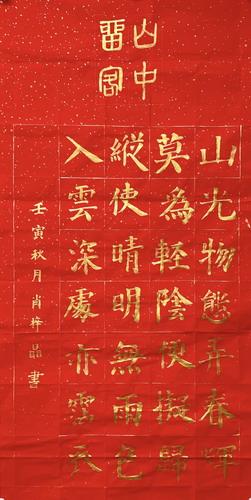 山中
留客
山光物態弄春暉
莫為輕陰便擬歸
縱使晴明無雨色
入雲深處亦霑衣
壬寅秋月肖梓晶書